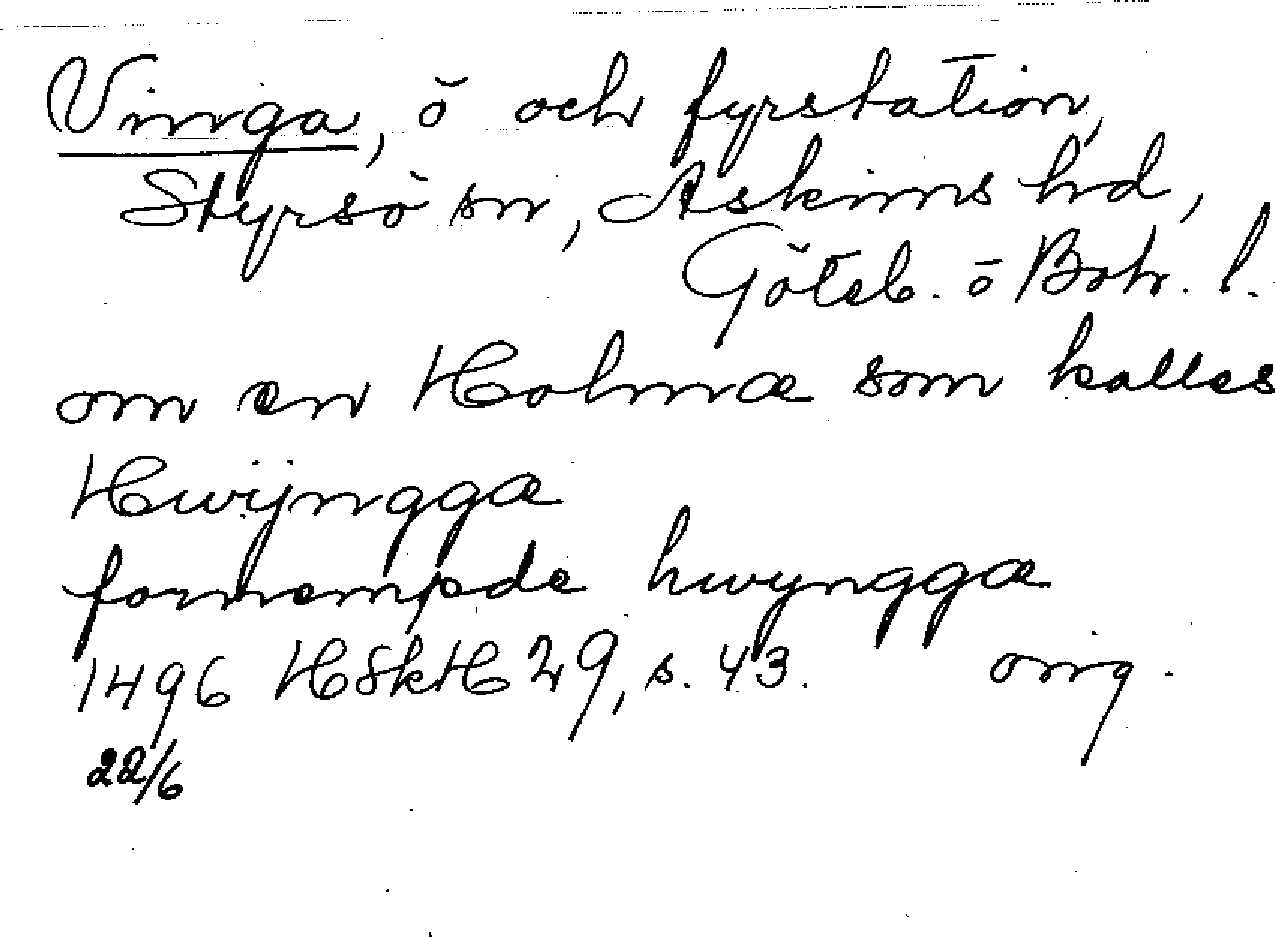 Vinga, ö och fyrstation,
Styrsö sn, Askims hd,
Göteb. o Boh. l.
om en Holmæ som kalles
Hwijnggæ
fornempde hwynggæ
1496 HSkH 29, s. 43. orig.
22/6